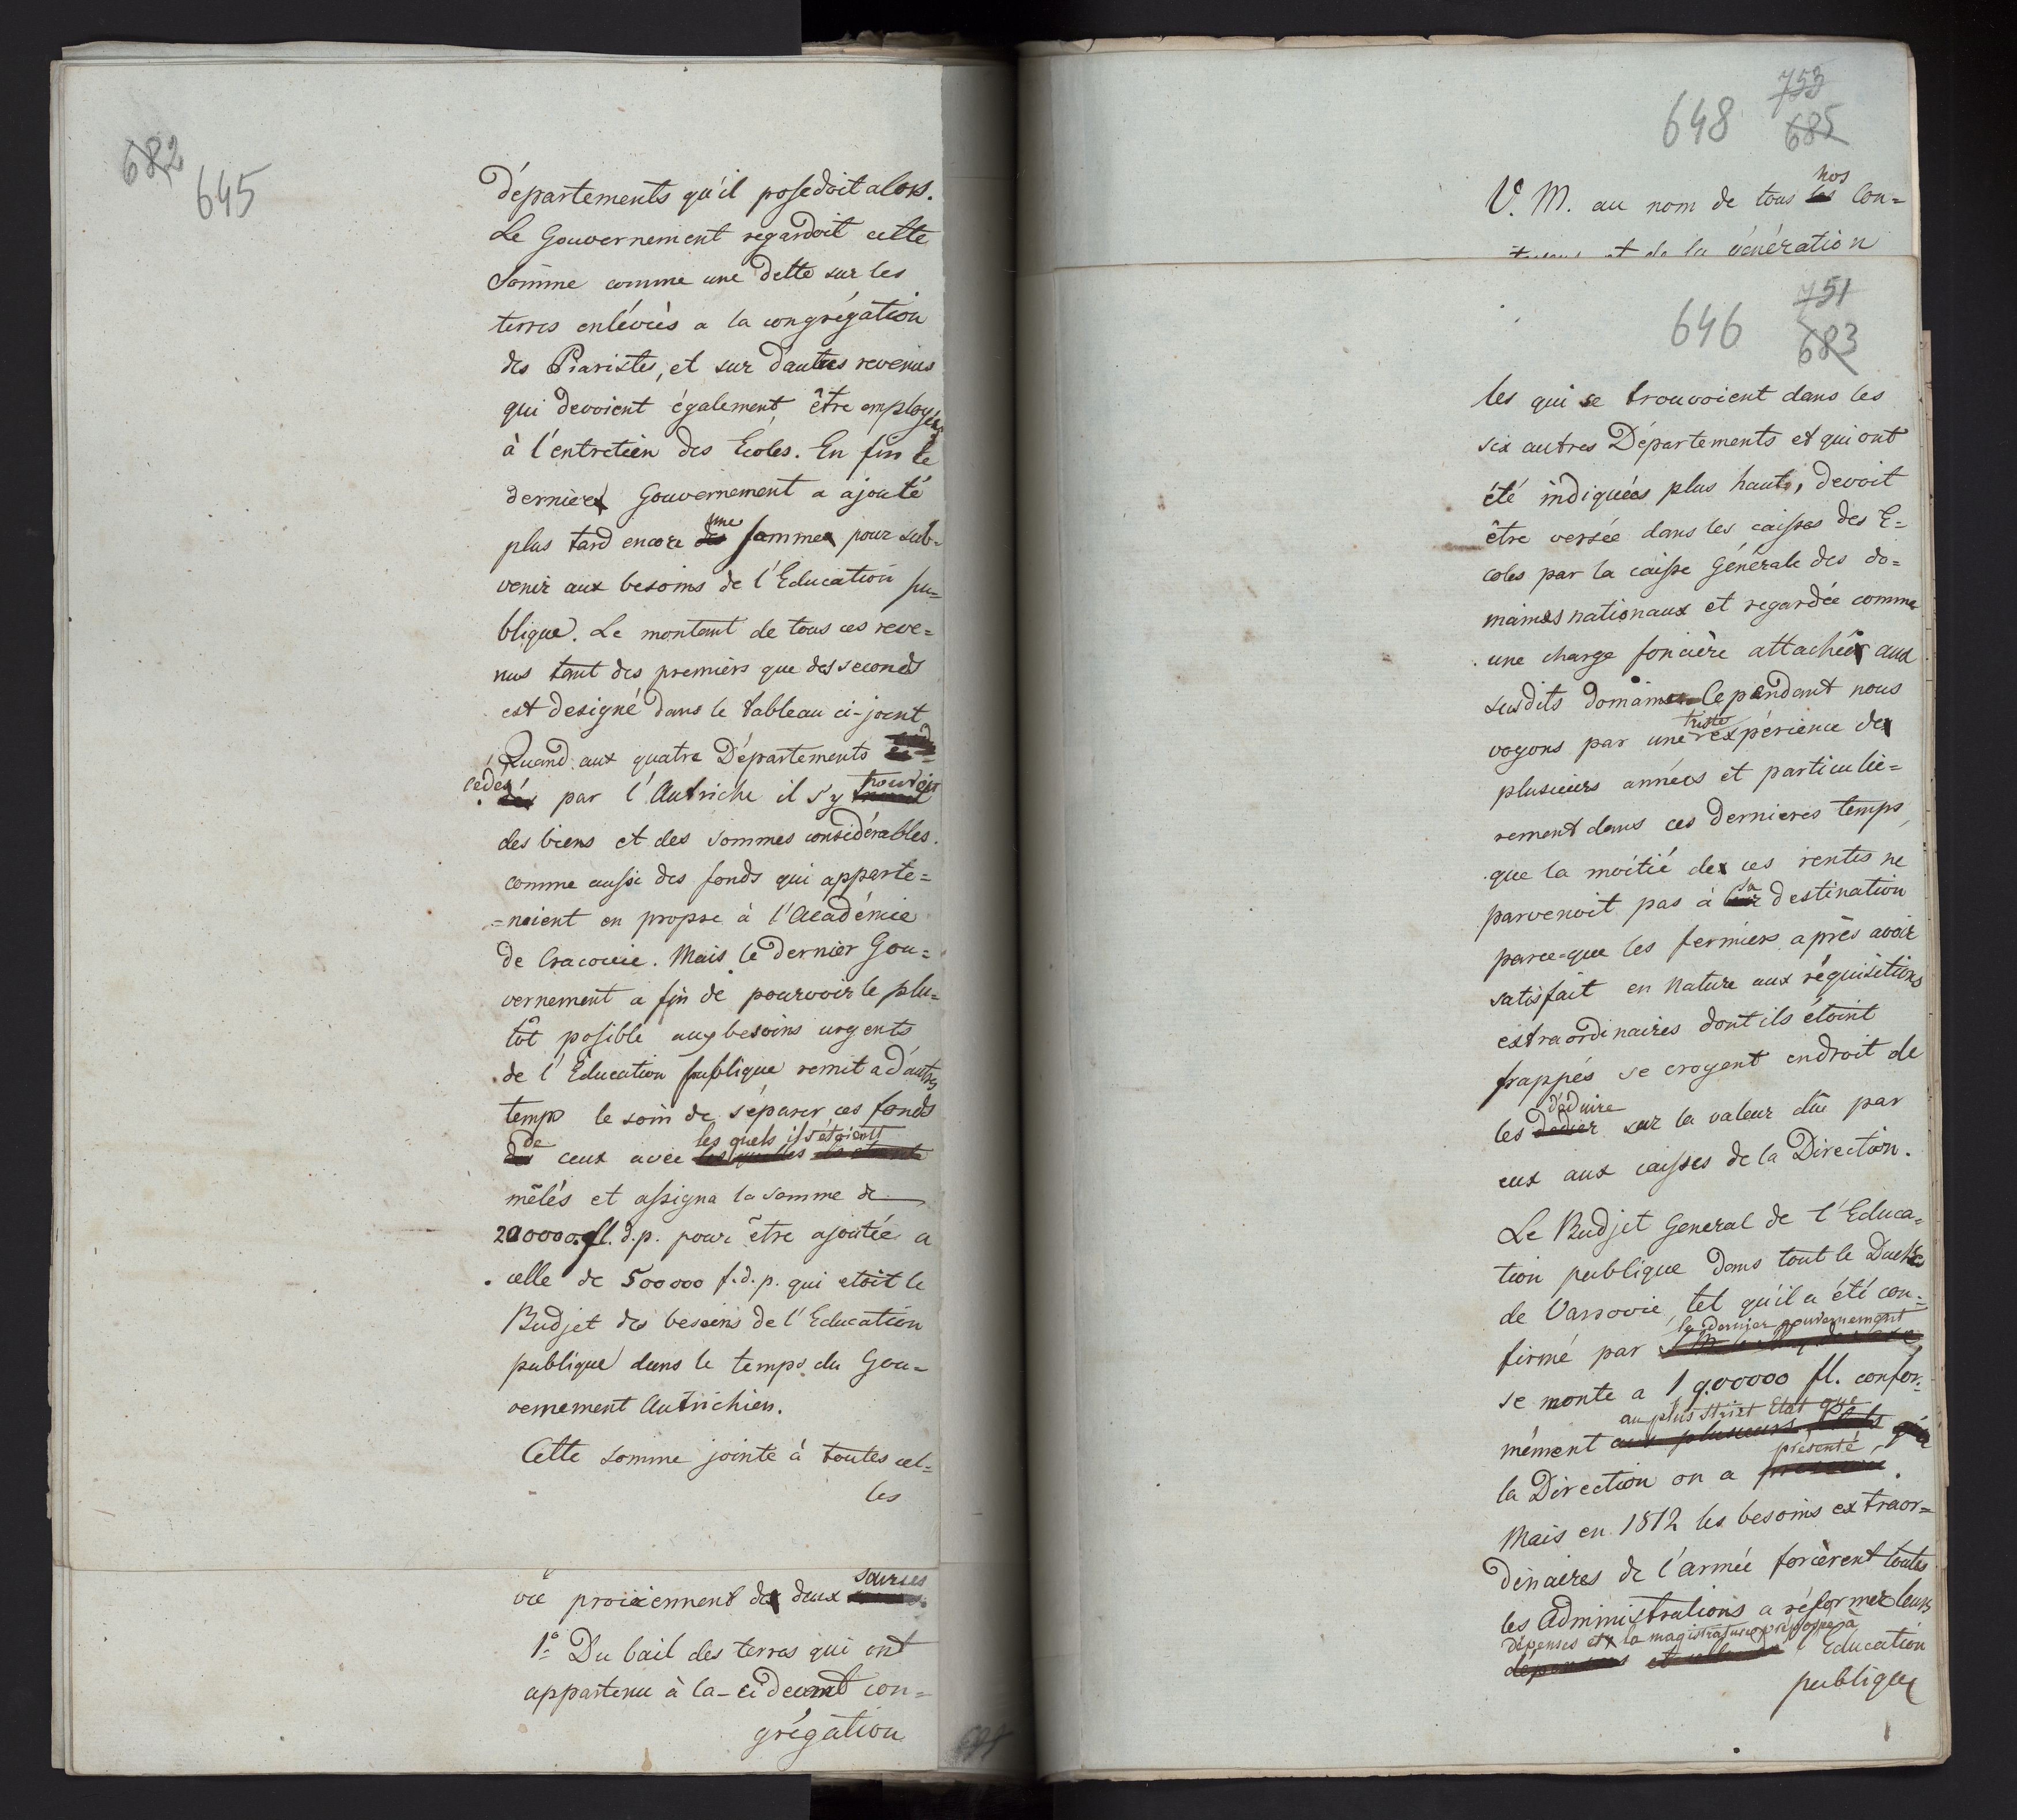 682
645
départements qu'il posedoit alors.
Le Gouvernement regardoit cette
Somme comme une dette sur les
terres enlévées a la congrégation
des Piaristes, et sur d'autres revenus
qui devoient également être employés
à l'entretien des Ecoles. En fin le
dernier Gouvernement a ajouté
une
plus tard encore des somme pour sub-
venir aux besoins de l'Education pu-
blique. Le montant de tous ces reve=
nus tant des premiers que des seconds
est designé dans le tableau ci-joint
Quand aux quatre Départements
cédés par l'Autriche il s'y trouvoit
des biens et des sommes considérables.
comme aussi des fonds qui apparte=
=noient en propre à l'Académie
de Cracovie. Mais le dernier Gou=
vernement a fin de pourvoir le plu=
tôt posible aux besoins urgents
de l'Education publique remit a d'autres
temps le soin de séparer ces fonds
de les quels ils étoient
des ceux avec les quelles
mêlés et assigna la somme de
200000. fl. d.p. pour être ajoutée a
celle de 500000 f.d.p. qui etoit le
Budjet des besoins de l'Education
publique dans le temps du Gou=
vernement Autrichien.
Cette somme jointe à toutes cel=
les
sources
vie proviennent de deux
1º Du bail des terres qui ont
appartenu à la-ci devant con=
grégation
753
648 685
nos
V. M. au nom de tous les Con=
et de la vénération
751
646
683
les qui se trouvoient dans les
six autres Départements et qui ont
été indiquées plus haut, devoit
être versée dans les caisses des E=
coles par la caisse Générale des do=
maines nationaux et regardée comme
une charge foncière attachée aux
susdits domaines Cependant nous
triste
voyons par une expérience de
plusieurs années et particuliè=
rement dans ces dernieres temps,
que la moitié de ces rentes ne
sa
parvenoit pas à leur destination
parce-que les fermiers après avoir
satisfait en nature aux réquisitions
extraordinaires dont ils étoint
frappés se croyent endroit de
déduire
les dedier sur la valeur dûe par
eux aux caisses de la Direction.
Le Budjet General de l'Educa=
tion publique dans tout le Duché
de Varsovie, tel qu'il a été con=
le dernier gouvernement
firmé par
se monte a 1 900000 fl. confor=
au plus strict Etat que
mément aux plusieurs Etats
présenté
la Direction on a .
Mais en 1812 les besoins extraor=
dinaires de l'armée forcèrent toutes
les Administrations a réformer leurs
dépenses et la magistrature préposée à
dépenses et celle de l'Education
publique